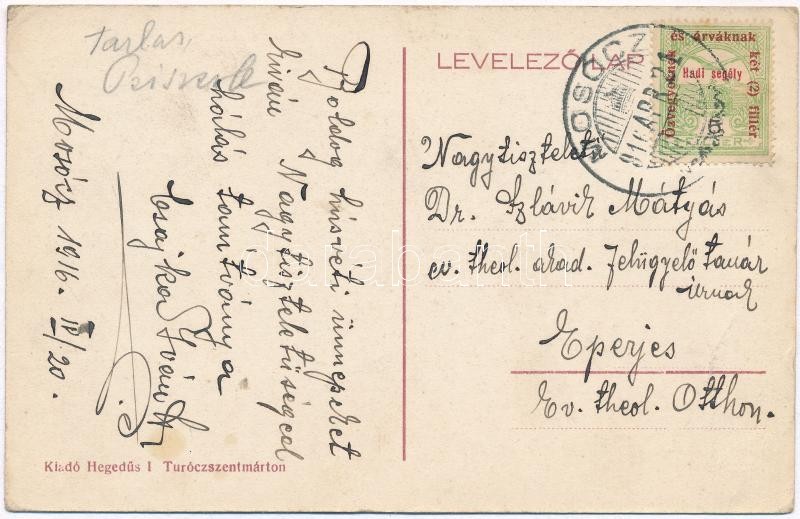 Tarlas,
LEVELEZŐLAP
MOSÓCZ
916 APR. 21
és árváknak
Özvegyeknek
Hadi segély
két (2) fillér
Boldog húsvéti ünnepeket
kíván Nagytiszteletűséged
hálás tanítványa
Csajka Iván
Mosócz 1916. IV/20.
Nagytiszteletű
Dr. Szlávik Mátyás
ev. theol. akad. Felügyelő tanár
úrnak
Eperjes
Ev. theol. Otthon.
Kiadó Hegedűs I Turóczszentmárton
darabanth